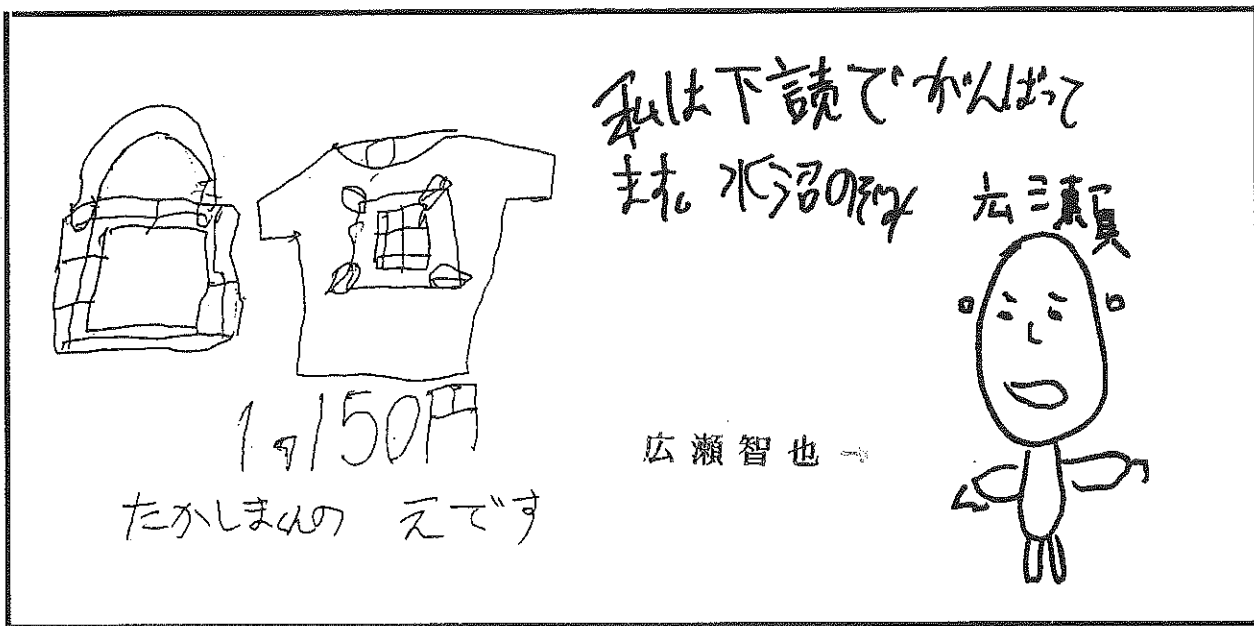 私は下読でがんばって
ます。水沼の
広瀬
1,150円
たかしまくんの えです
広瀬智也